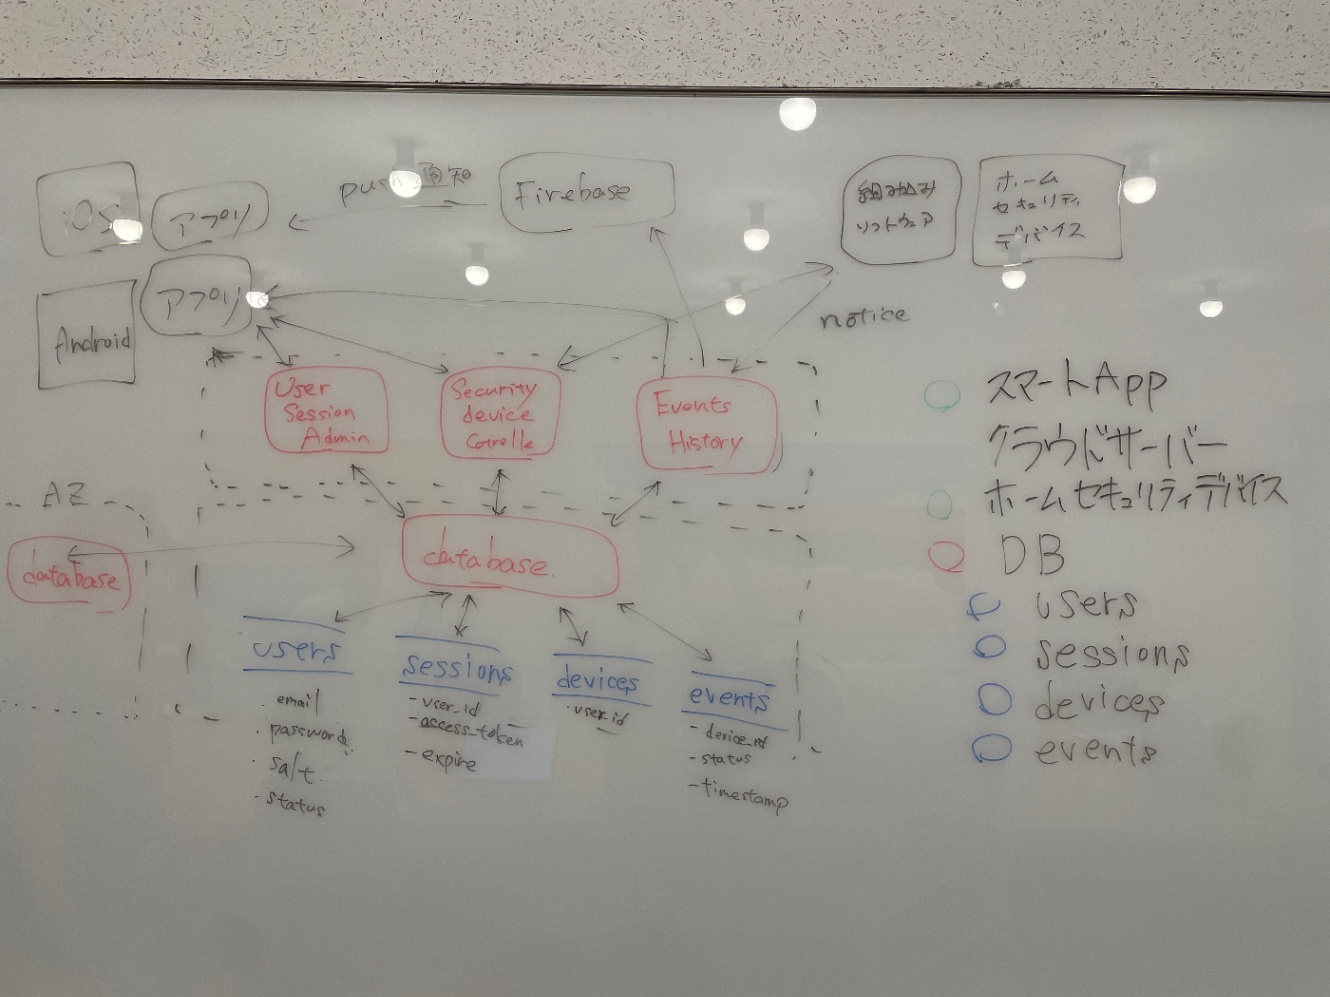 push 通知
Firebase
iOS
アプリ
組み込み
ソフトウェア
ホーム
セキュリティ
デバイス
Android
アプリ
notice
User
Session
Admin
Security
device
Controlle
Events
History
AZ
database
database.
users
・email
・password
・salt
・status
sessions
-user_id
-access_token
-expire
devices
・user_id
events
-device_id
-status
-timestamp
スマートApp
クラウドサーバー
ホームセキュリティデバイス
DB
users
sessions
devices
events